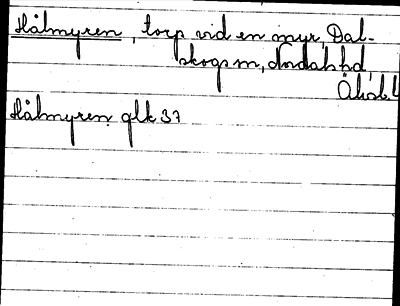 Hålmyren, torp vid en myr, Dal-
skogs sn, Nordals hd,
Älvsb. l
Hålmyren glk 37